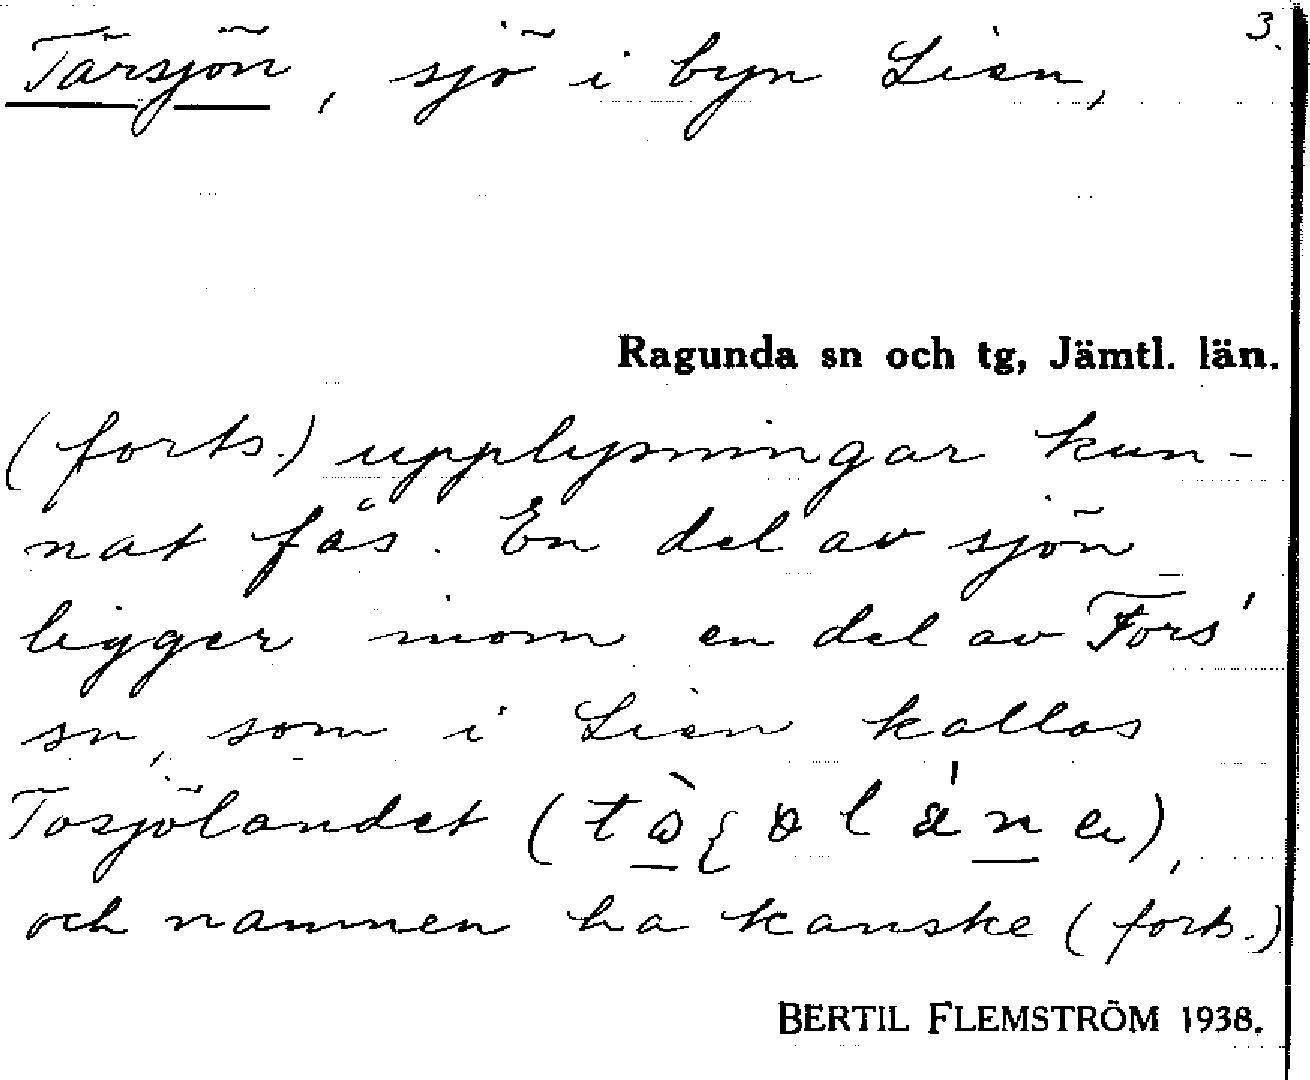 3.
Tärsjön, sjö i byn Lien,
Ragunda sn och tg, Jämtl. län.
(forts.) upplysningar kun-
nat fås. En del av sjön
ligger inom en del av Fors'
sn, som i Lien kallas
Tosjölandet
och namnen ha kanske (forts.)
BERTIL FLEMSTRÖM 1938.